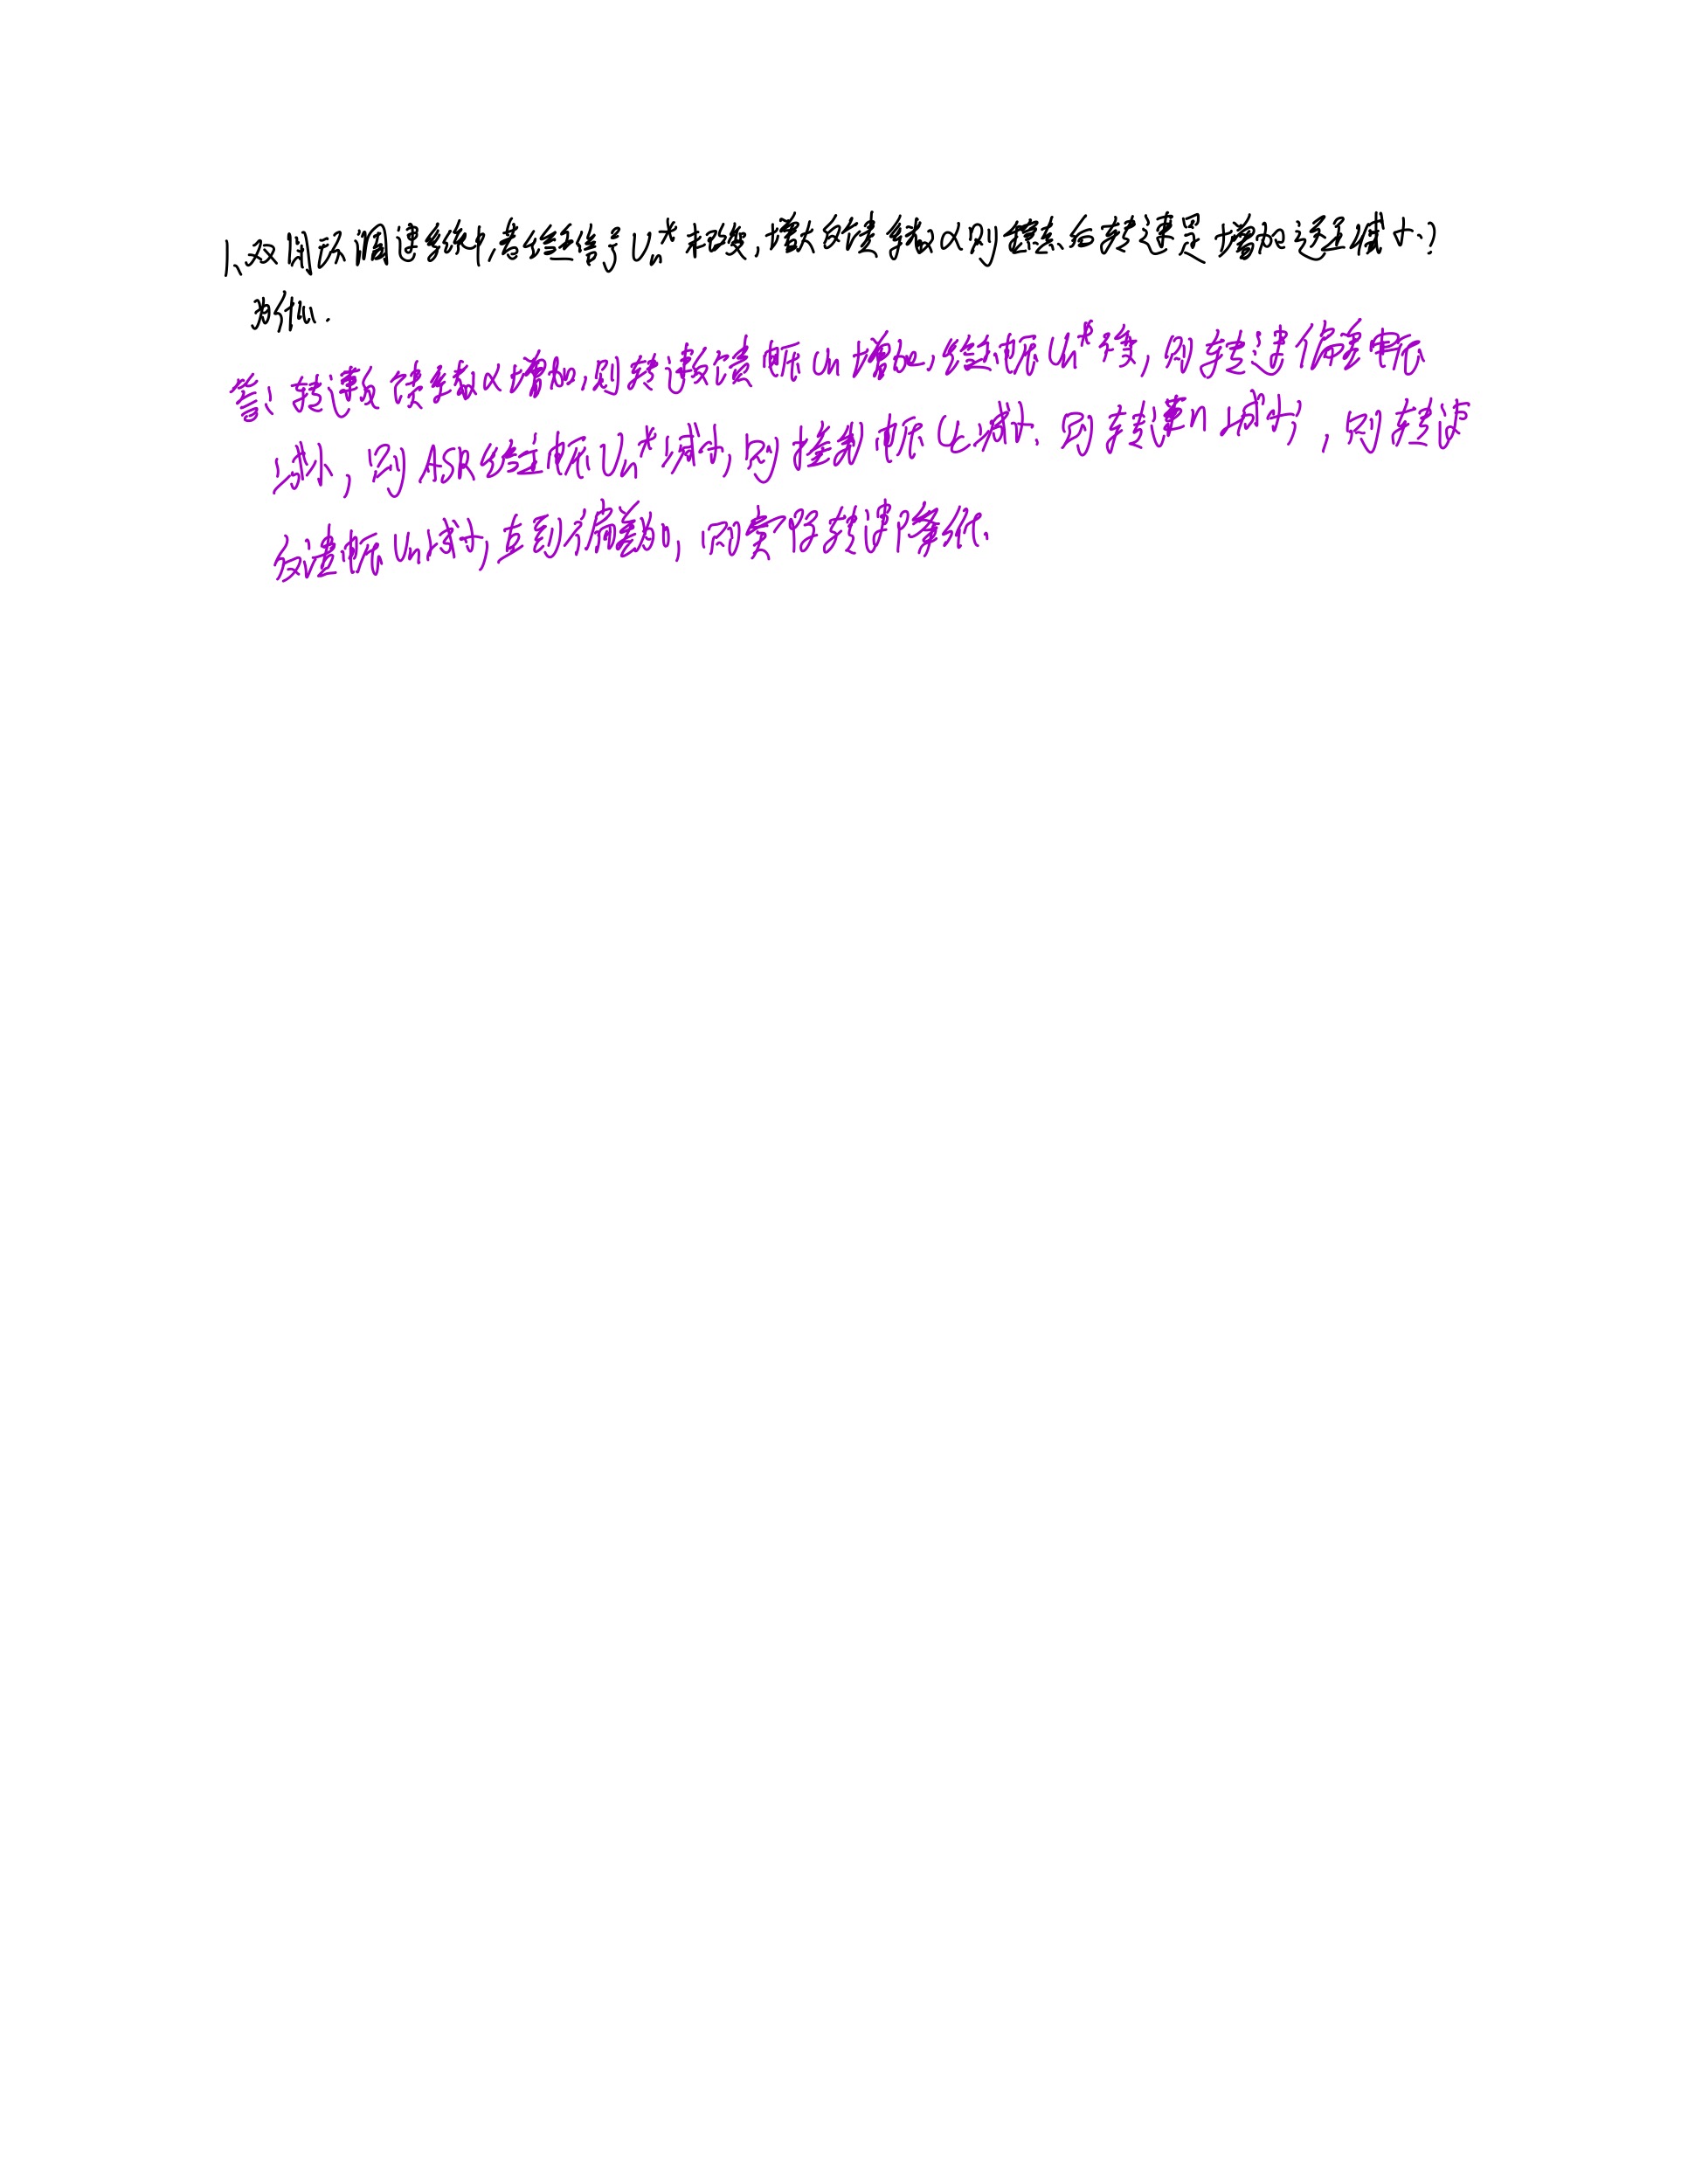 1、双闭环调速系统中,若给定信号Un*未改变,增大反馈系数α则稳态后转速是增加还是减小?
为什么.
答:转速反馈系数α增加,则转速反馈电压Un增加,给定电压Un*不变,则转速偏差电压
减小,则ASR给定电压Un*减小,则控制电压Uc减小、则转速n减小,则转速
反馈电压Un减小,直到偏差为0,则实际转速降低.